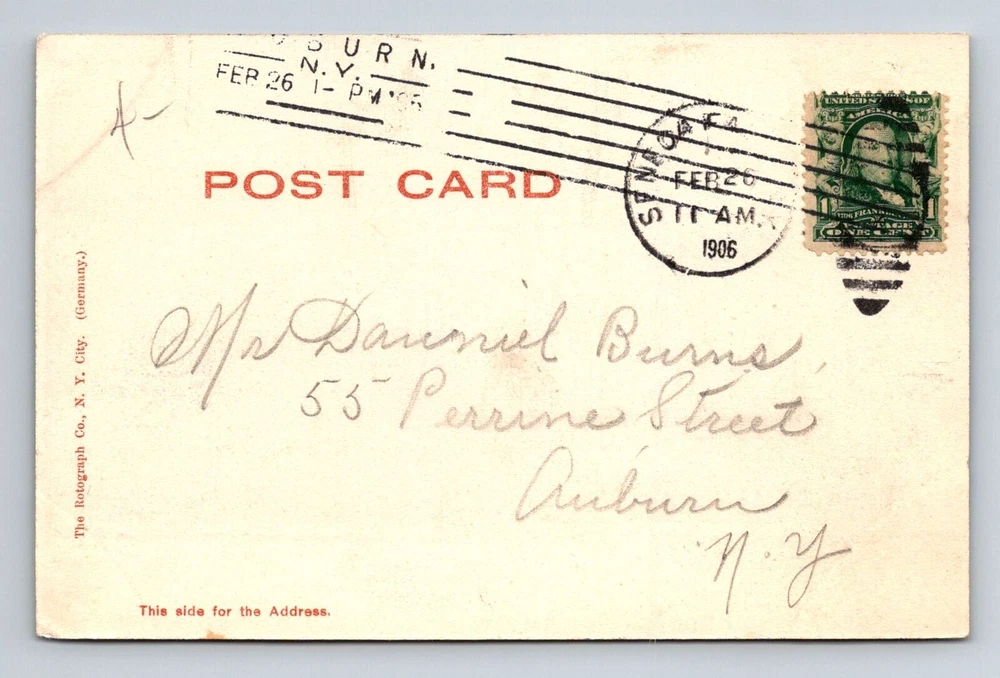 BURN.
N.Y.
FEB 26 1- PM '06
A-
POST CARD
SENECA FA
FEB 26
11 AM.
1906
UNITED STATES OF
AMERICA
1 1
FRANKLIN
POSTAGE
ONE CENT
Mr Dauniel Burns,
55 Perrine Street
Auburn
N.Y
The Rotograph Co., N. Y. City. (Germany.)
This side for the Address.